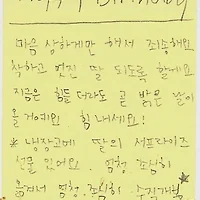 마음 상하게만 해서 죄송해요
착하고 멋진 딸 되도록 할게요
지금은 힘들더라도 곧 밝은 날이
올거예요 힘내세요!
* 냉장고에 딸의 서프라이즈
선물 있어요. 엄청 조심히
엄청 조심히